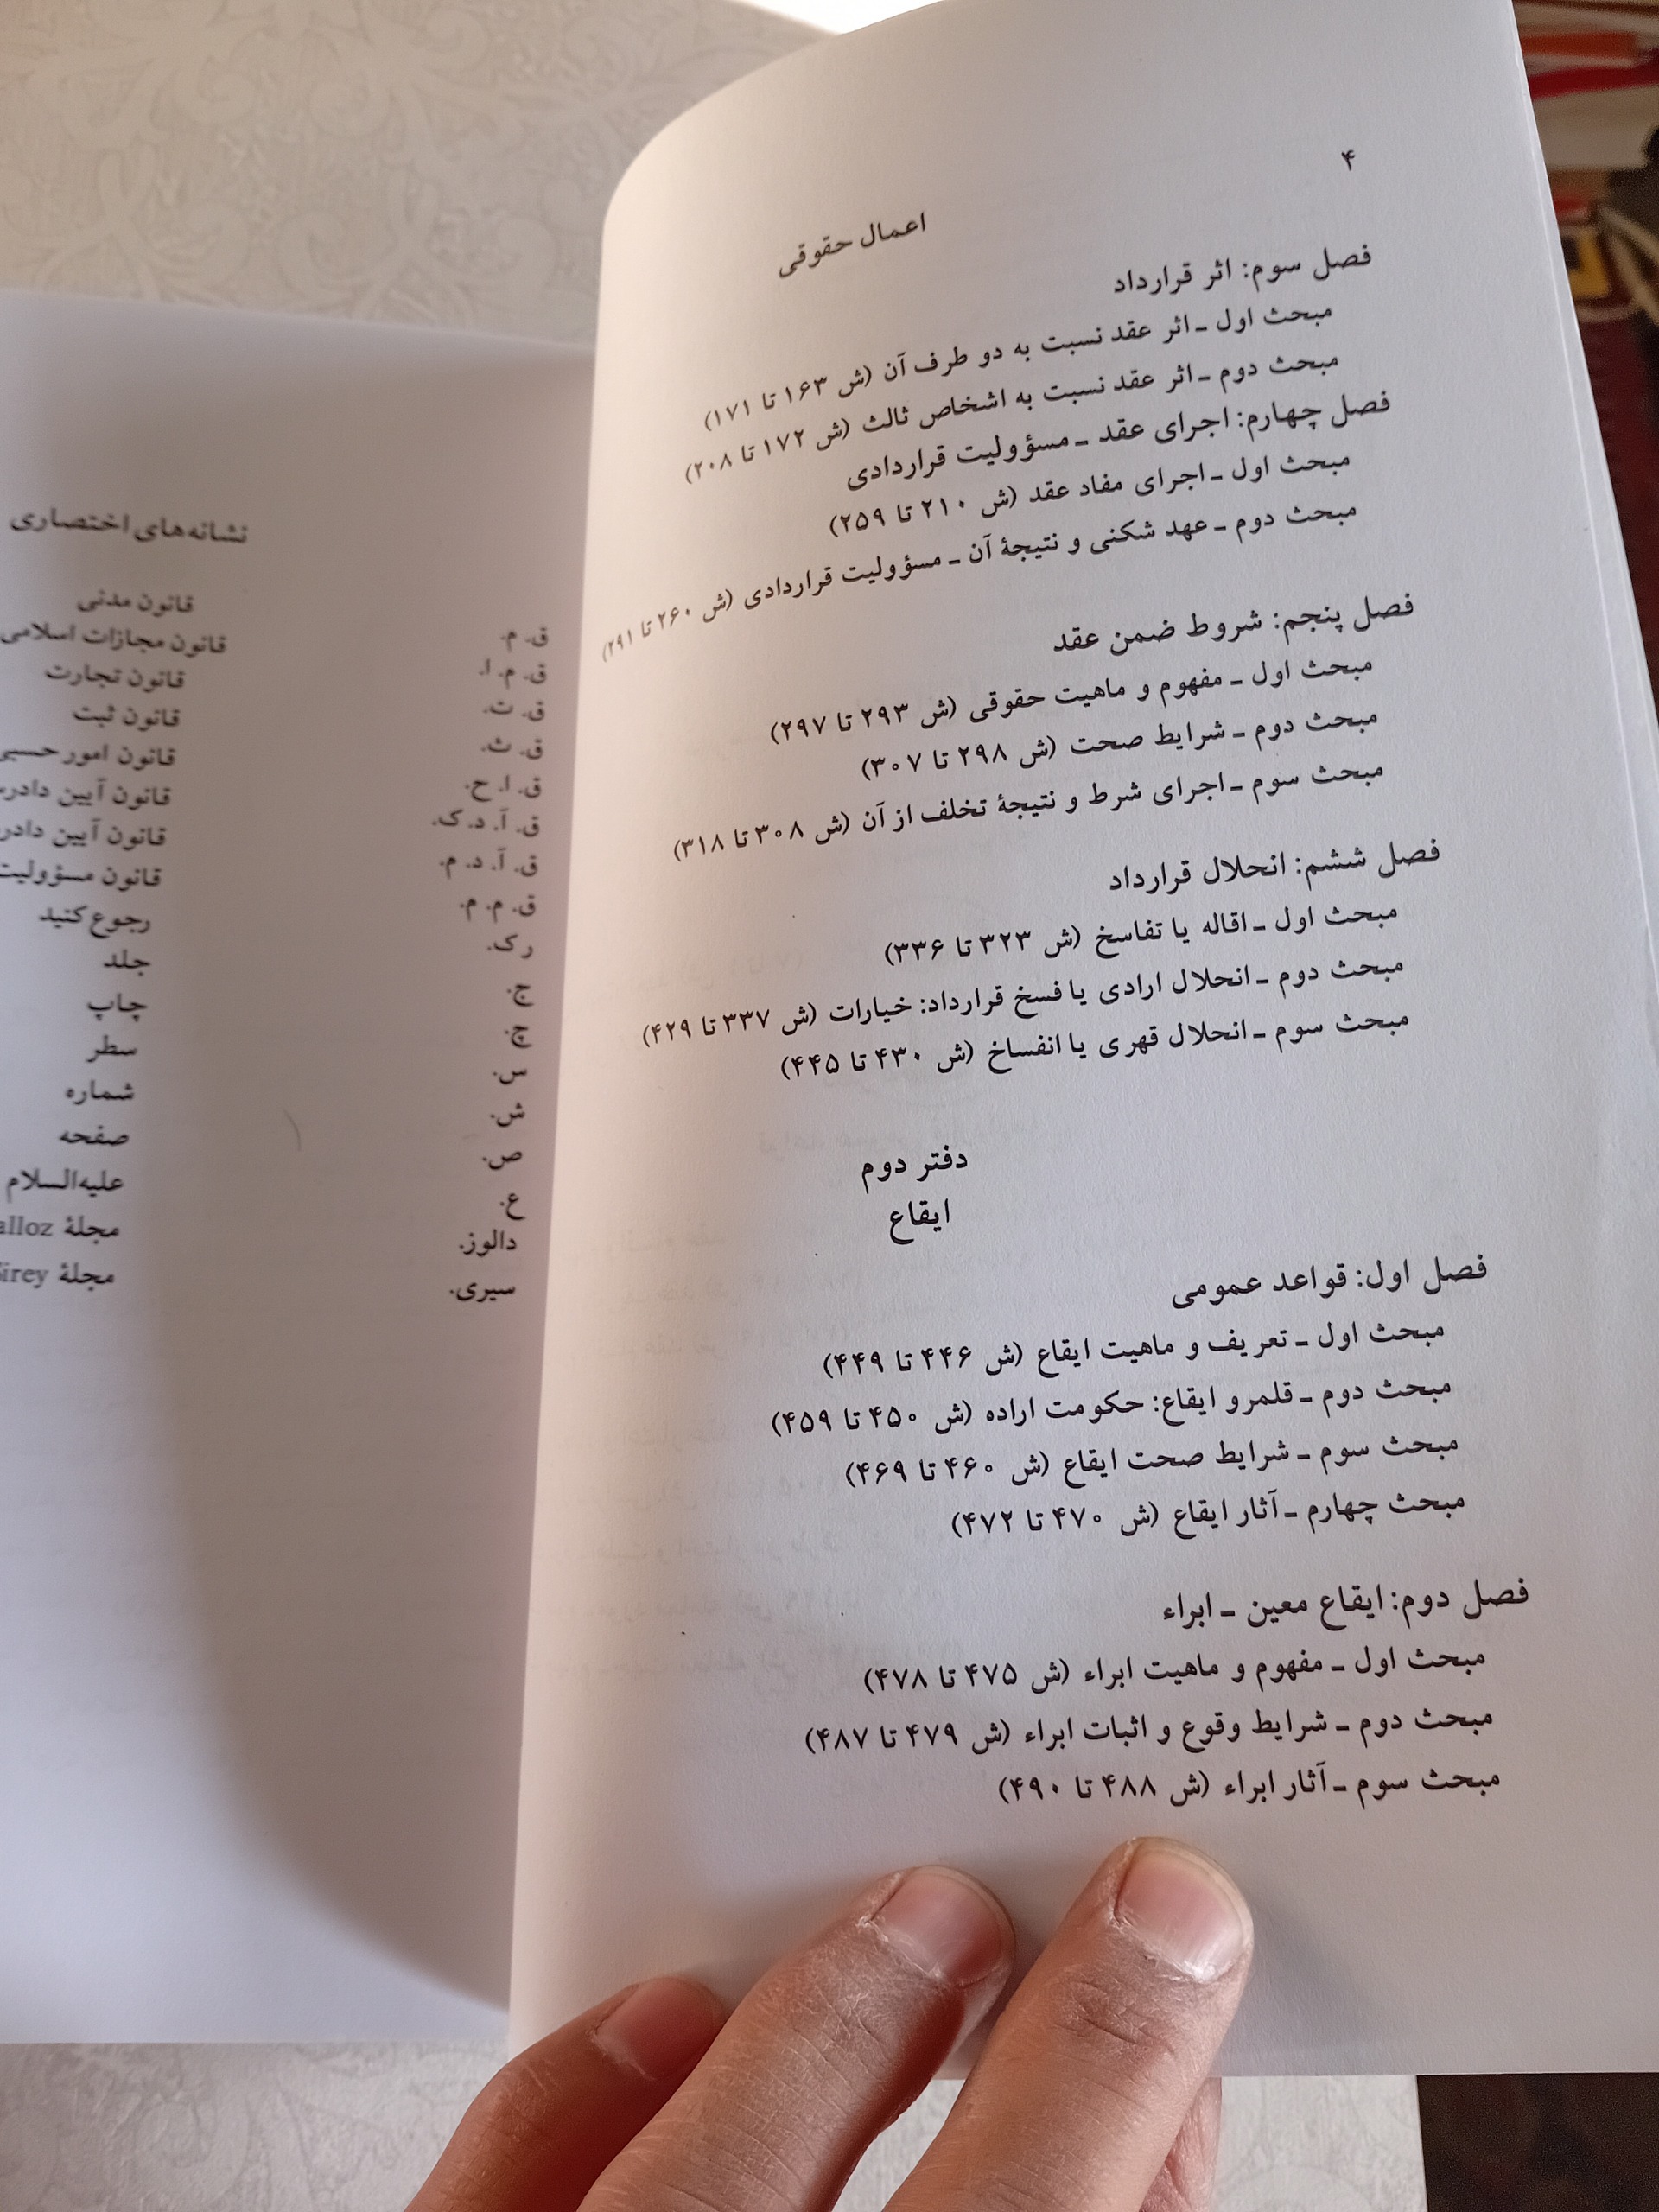 ۴
اعمال حقوقی
فصل سوم: اثر قرارداد
مبحث اول ـ اثر عقد نسبت به دو طرف آن (ش ۱۶۳ تا ۱۷۱)
مبحث دوم ـ اثر عقد نسبت به اشخاص ثالث (ش ۱۷۲ تا ۲۰۸)
فصل چهارم: اجرای عقد ـ مسؤولیت قراردادی
مبحث اول ـ اجرای مفاد عقد (ش ۲۱۰ تا ۲۵۹)
مبحث دوم ـ عهد شکنی و نتیجۀ آن ـ مسؤولیت قراردادی (ش ۲۶۰ تا ۲۹۱)
فصل پنجم: شروط ضمن عقد
مبحث اول ـ مفهوم و ماهیت حقوقی (ش ۲۹۳ تا ۲۹۷)
مبحث دوم ـ شرایط صحت (ش ۲۹۸ تا ۳۰۷)
مبحث سوم ـ اجرای شرط و نتیجۀ تخلف از آن (ش ۳۰۸ تا ۳۱۸)
فصل ششم: انحلال قرارداد
مبحث اول ـ اقاله یا تفاسخ (ش ۳۲۳ تا ۳۳۶)
مبحث دوم ـ انحلال ارادی یا فسخ قرارداد: خیارات (ش ۳۳۷ تا ۴۲۹)
مبحث سوم ـ انحلال قهری یا انفساخ (ش ۴۳۰ تا ۴۴۵)
دفتر دوم
ایقاع
فصل اول: قواعد عمومی
مبحث اول ـ تعریف و ماهیت ایقاع (ش ۴۴۶ تا ۴۴۹)
مبحث دوم ـ قلمرو ایقاع: حکومت اراده (ش ۴۵۰ تا ۴۵۹)
مبحث سوم ـ شرایط صحت ایقاع (ش ۴۶۰ تا ۴۶۹)
مبحث چهارم ـ آثار ایقاع (ش ۴۷۰ تا ۴۷۲)
فصل دوم: ایقاع معین ـ ابراء
مبحث اول ـ مفهوم و ماهیت ابراء (ش ۴۷۵ تا ۴۷۸)
مبحث دوم ـ شرایط وقوع و اثبات ابراء (ش ۴۷۹ تا ۴۸۷)
مبحث سوم ـ آثار ابراء (ش ۴۸۸ تا ۴۹۰)
نشانه‌های اختصاری
ق. م. قانون مدنی
ق. م. ا. قانون مجازات اسلامی
ق. ت. قانون تجارت
ق. ث. قانون ثبت
ق. ا. ح. قانون امور حسبی
ق. آ. د. ک. قانون آیین
ق. آ. د. م. قانون آیین
ق. م. م. قانون مسؤولیت
ر ک. رجوع کنید
ج. جلد
چ. چاپ
س. سطر
ش. شماره
ص. صفحه
ع. علیه‌السلام
دالوز. مجلۀ
سیری. مجلۀ